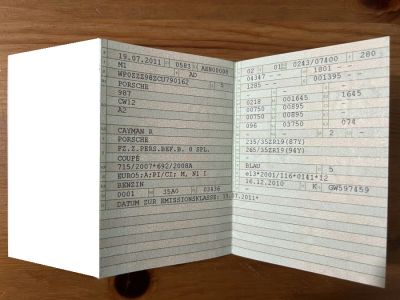 19.07.2011 0583 AEN00008
M1 AD
WP0ZZZ98ZCU790162 5
PORSCHE
987
CW12
A2
CAYMAN R
PORSCHE
FZ.Z.PERS.BEF.B. 8 SPL.
COUPÉ
715/2007*692/2008A
EURO5;A;PI/CI; M, N1 I
BENZIN
0001 35A0 03436
DATUM ZUR EMISSIONSKLASSE: 19.07.2011*
02 01 0243/07400 280
04347 - - 1801 - -
1285 - - 001395 - -
- -
0218 001645 1645
00750 00895
00750 00895
096 03750 074
- - 2 -
235/35ZR19(87Y)
265/35ZR19(94Y)
- -
BLAU 5
e13*2001/116*0141*12
16.12.2010 K GW597459